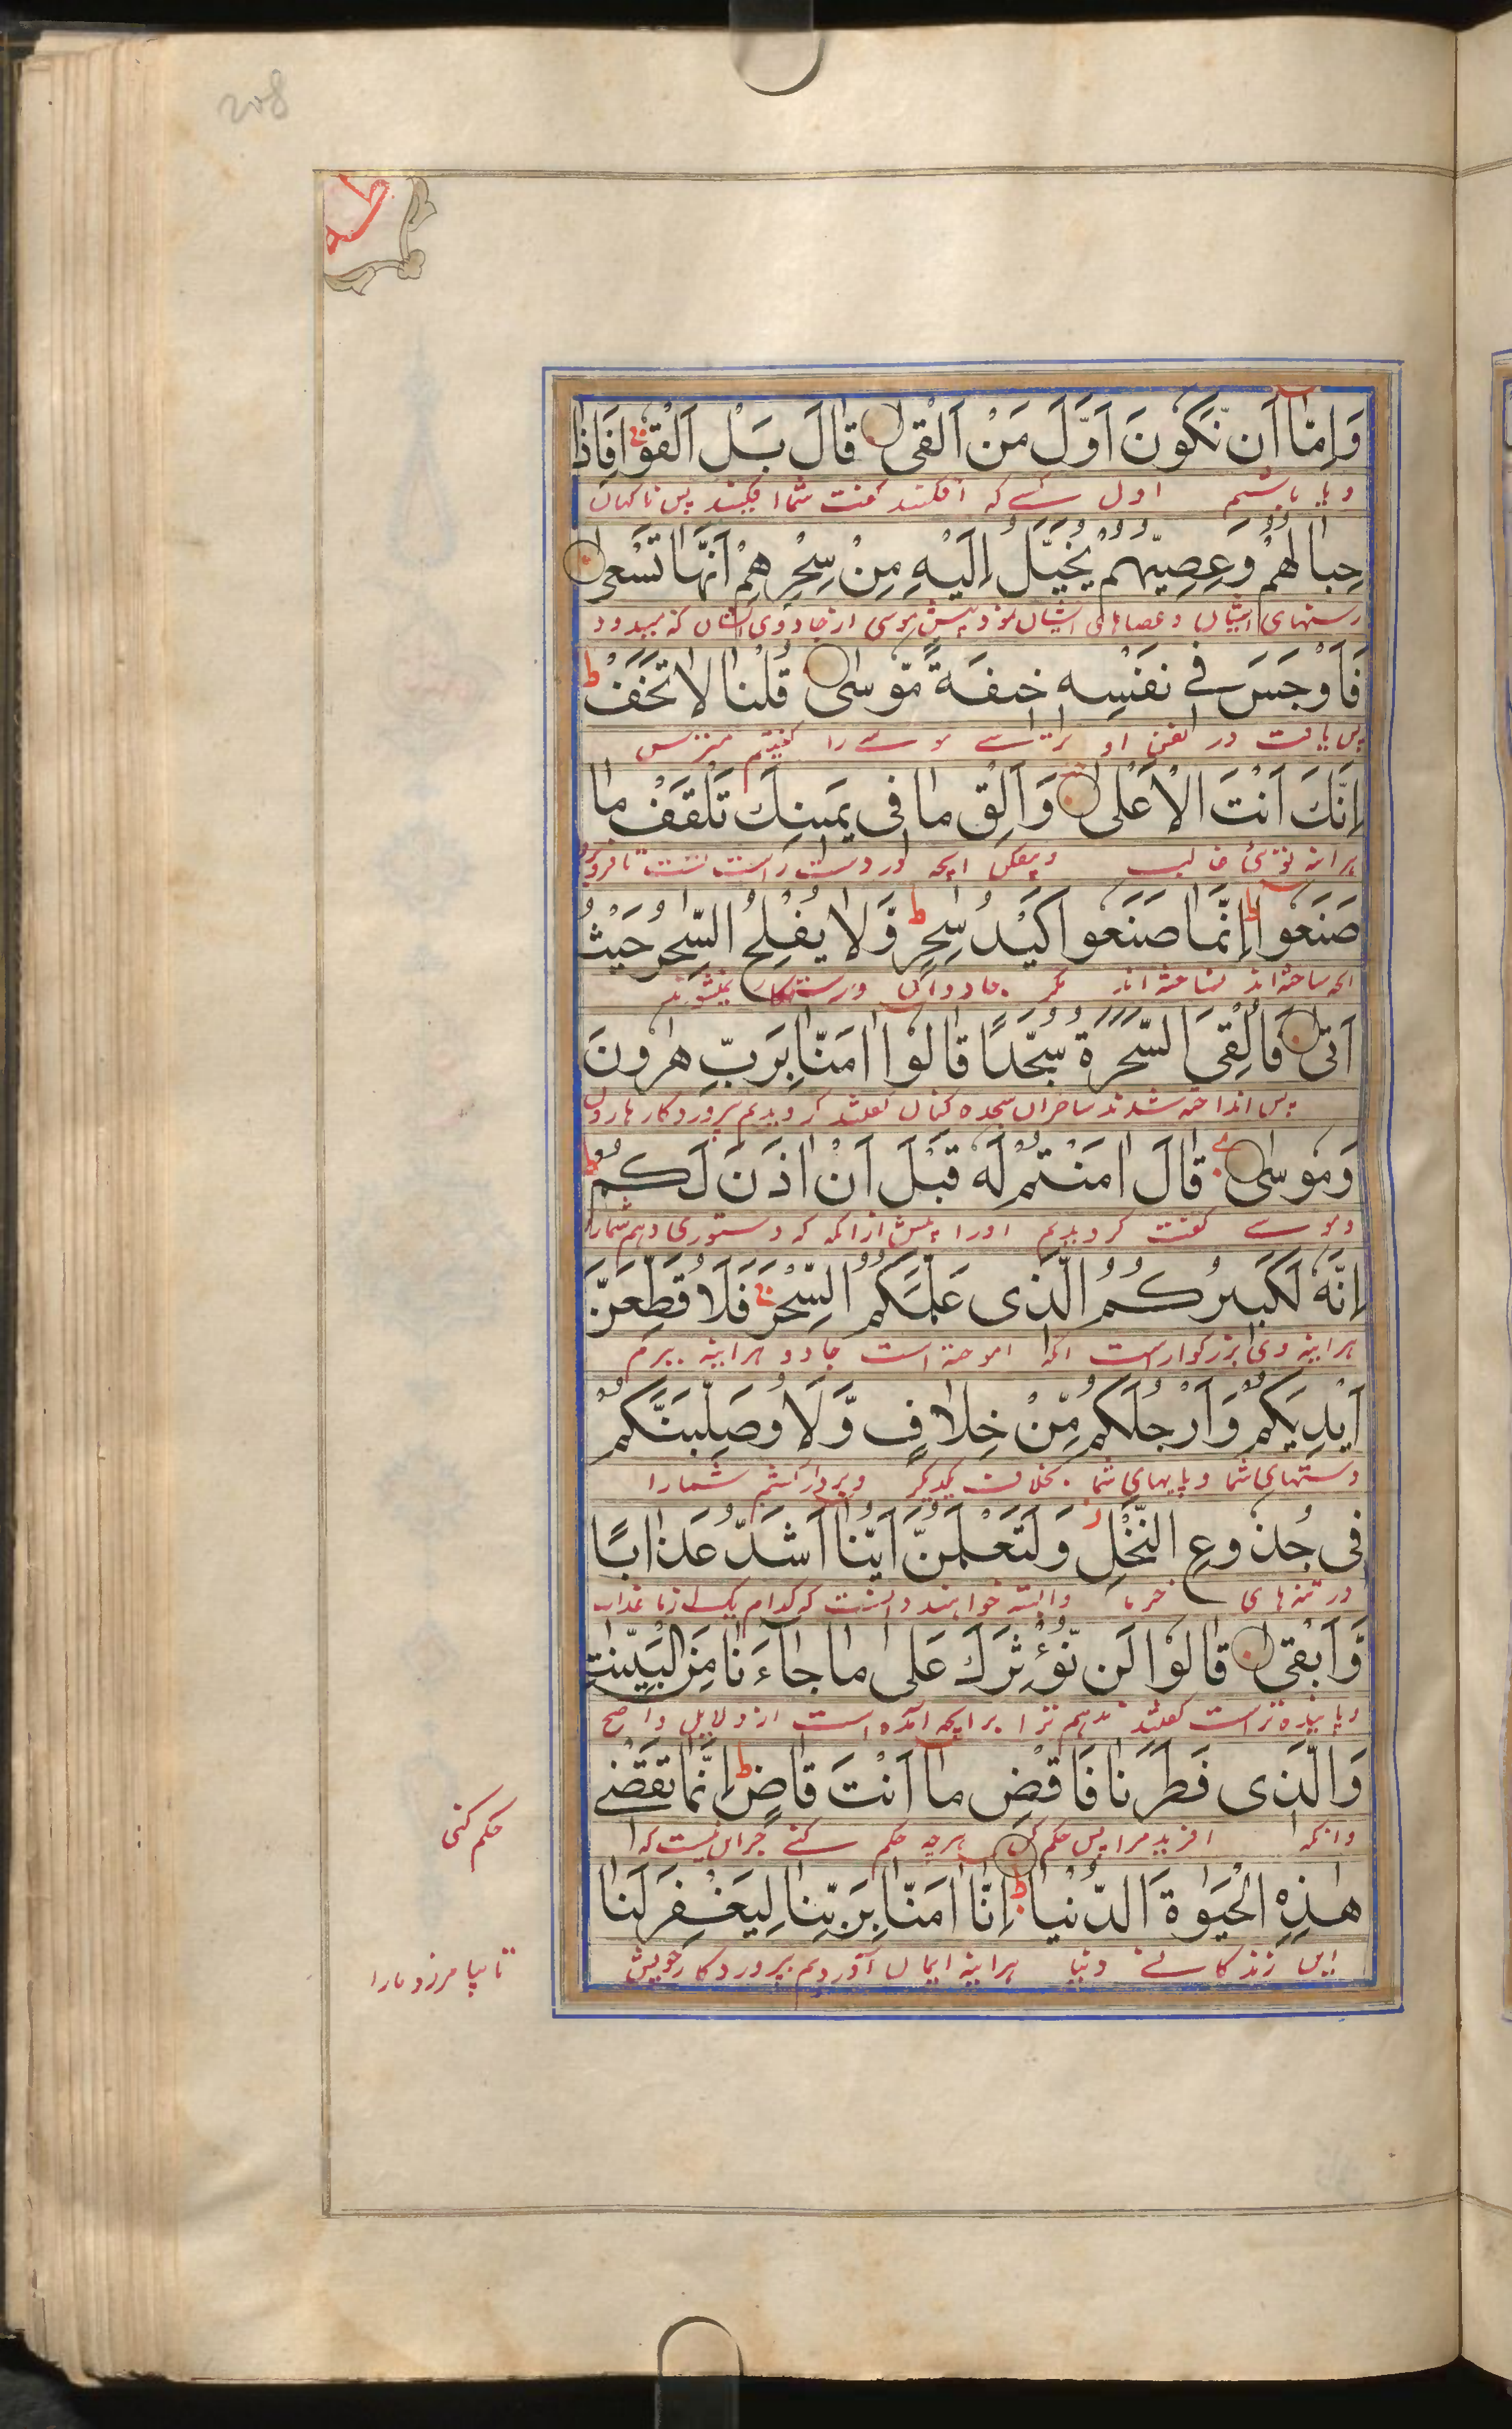 208
طه
وَاِمَّا اَن نَّكُونَ اَوَّلَ مَنْ اَلْقٰى قَالَ بَلْ اَلْقُوْا فَاِذَا
و یا باشیم اول کسے که افکند گفت شما افکنید پس ناگهان
حِبَالُهُمْ وَعِصِيُّهُمْ يُخَيَّلُ اِلَيْهِ مِنْ سِحْرِهِمْ اَنَّهَا تَسْعٰى
رسنهای ایشان و عصاهای ایشان نمود پیش موسی از جادوی ایشان که میدود
فَاَوْجَسَ فِي نَفْسِهٖ خِيفَةً مُّوسٰى قُلْنَا لَا تَخَفْ
پس یافت در نفس او ترسے موسے را گفتیم مترس
اِنَّكَ اَنْتَ الْاَعْلٰى وَاَلْقِ مَا فِى يَمِينِكَ تَلْقَفْ مَا
هراینه توئی غالب و بیفکن انچه در دست راست تست تا فرو برد
صَنَعُوا اِنَّمَا صَنَعُوا كَيْدُ سٰحِرٍ وَّلَا يُفْلِحُ السّٰحِرُ حَيْثُ
انچه ساخته اند نساخته اند مگر جادوان و رستگار نمیشوند
اَتٰى فَاُلْقِىَ السَّحَرَةُ سُجَّدًا قَالُوا اٰمَنَّا بِرَبِّ هٰرُونَ
پس انداخته شدند ساحران سجده کنان گفتند گرویدیم بپروردگار هارون
وَمُوسٰى قَالَ اٰمَنْتُمْ لَهٗ قَبْلَ اَنْ اٰذَنَ لَكُمْ
و موسے گفت گرویدیم اورا پیش ازانکه که دستوری دهم شمارا
اِنَّهٗ لَكَبِيرُكُمُ الَّذِى عَلَّمَكُمُ السِّحْرَ فَلَاُقَطِّعَنَّ
هراینه وی بزرگوار است انکه اموخته است جادو هراینه ببرم
اَيْدِيَكُمْ وَاَرْجُلَكُمْ مِّنْ خِلَافٍ وَّلَاُوصَلِّبَنَّكُمْ
دستهای شما و پایهای شما بخلاف یکدیگر و بردار کشم شمارا
فِى جُذُوعِ النَّخْلِ وَلَتَعْلَمُنَّ اَيُّنَا اَشَدُّ عَذَابًا
در تنه های خرما و البته خواهند دانست که کدام یک از ما عذاب
وَّاَبْقٰى قَالُوا لَن نُّؤْثِرَكَ عَلٰى مَا جَاءَنَا مِنَ الْبَيِّنٰتِ
و پاینده تر است گفتند ندهیم ترا برانچه آمده است از دلایل واضح
وَالَّذِى فَطَرَنَا فَاقْضِ مَا اَنْتَ قَاضٍ اِنَّمَا تَقْضِے
وانکه افرید مرا پس حکم کن هرچه حکم کنے جز این نیست که
حکم کنی
هٰذِهِ الْحَيٰوةَ الدُّنْيَا اِنَّا اٰمَنَّا بِرَبِّنَا لِيَغْفِرَ لَنَا
این زندگانے دنیا هراینه ایمان آوردیم بپروردگار خویش
تا بیامرزد مارا